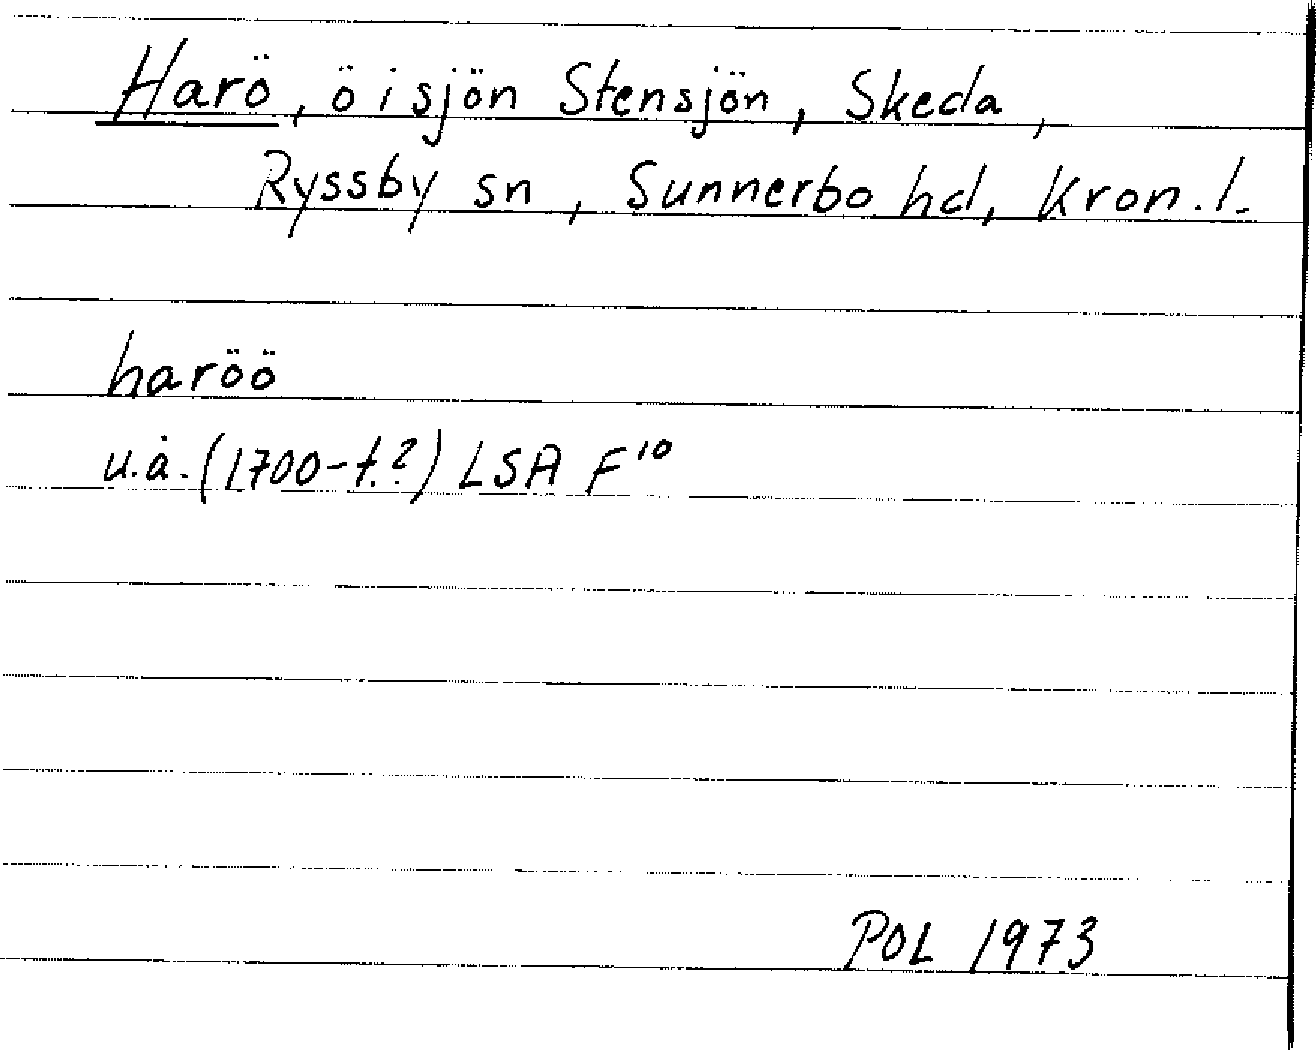 Harö, ö i sjön Stensjön, Skeda,
Ryssby sn, Sunnerbo hd, Kron.l.
haröö
u.å. (1700-t.?) LSA F¹⁰
POL 1973